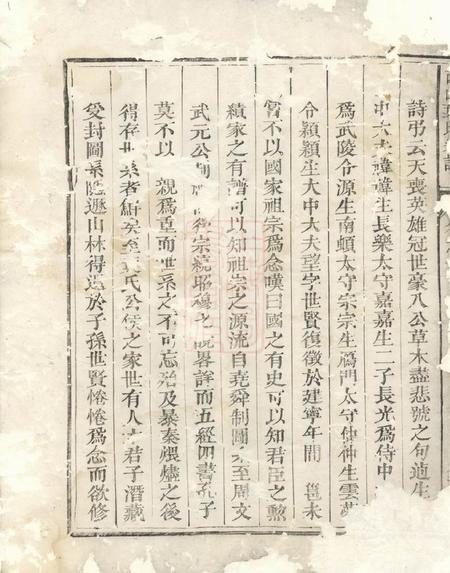 詩弔云天喪英雄冠世豪八公草木盡悲號之句適生
中大夫諱諱生長樂太守嘉嘉生二子長光爲侍中
爲武陵令源生南頓太守宗宗生鴈門太守仲神生雲
令穎穎生大中大夫望字世賢復徵於建寧年間 邕未
嘗不以國家祖宗爲念嘆曰國之有史可以知君臣之勲
績家之有譜可以知祖宗之源流自堯舜制圖 至周文
武元公 宗統昭穆之 畧詳而五經四書孔子
莫不以 親爲重而世系之不可忘殆及暴秦煨燼之後
得存 系者鮮矣至 氏公侯之家世有人 君子潛藏
受封圖系隱遯山林得 於子孫世賢惓惓爲念而欲修